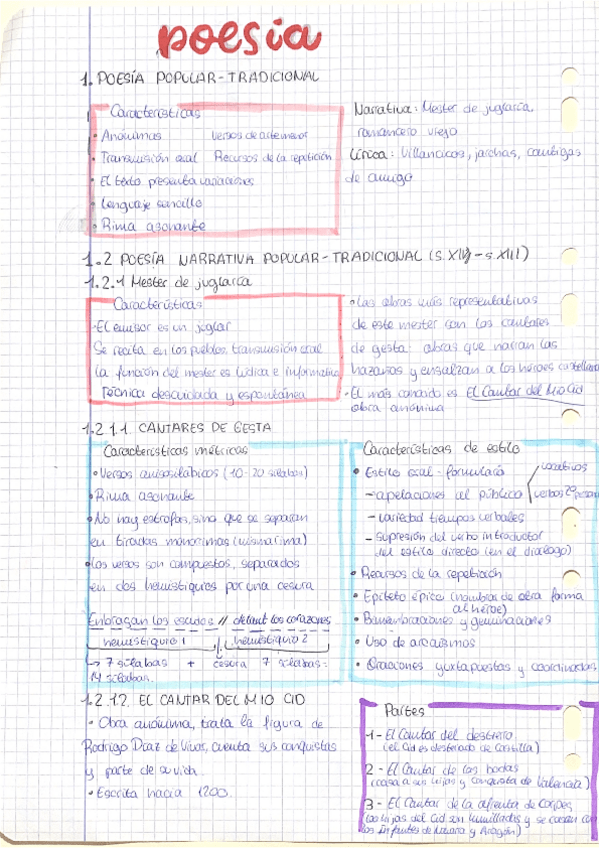 poesía
1. POESÍA POPULAR-TRADICIONAL
Características
• Anónimas Versos de arte menor
• Transmisión oral Recursos de la repetición
• El texto presenta variaciones
• Lenguaje sencillo
• Rima asonante
Narrativa: Mester de juglaría,
romancero viejo
Lírica: Villancicos, jarchas, cantigas
de amigo
1.2 POESÍA NARRATIVA POPULAR-TRADICIONAL (s. XII - s. XIII)
1.2.1 Mester de juglaría
Características
-El emisor es un juglar
Se recita en los pueblos, transmisión oral
la función del mester es lúdica e informativa
Técnica descuidada y espontánea
• Las obras más representativas
de este mester son los cantares
de gesta: obras que narran las
hazañas y ensalzan a los héroes castellano
-El más conocido es El Cantar del Mio Cid
obra anónima
1.2.1.1. CANTARES DE GESTA
Características métricas
• Versos anisosilábicos (10-20 sílabas)
• Rima asonante
• No hay estrofas, sino que se separan
en tiradas monorrimas (misma rima)
• Los versos son compuestos, separados
en dos hemistiquios por una cesura
Enbraçan los escudos // delant los corazones
hemistiquio 1 hemistiquio 2
→ 7 sílabas + cesura 7 sílabas =
14 sílabas.
Características de estilo
• Estilo oral-formulario
- apelaciones al público vocativos
verbos 2ª person
- variedad tiempos verbales
- supresión del verbo introductor
del estilo directo (en el diálogo)
• Recursos de la repetición
• Epíteto épico (nombrar de otra forma
al héroe)
• Bimembraciones y geminaciones
• Uso de arcaísmos
• Oraciones yuxtapuestas y coordinadas
1.2.1.2. EL CANTAR DEL MIO CID
• Obra anónima, trata la figura de
Rodrigo Díaz de Vivar, cuenta sus conquistas
y parte de su vida.
• Escrita hacia 1200.
Partes
-1- El Cantar del destierro
(el Cid es desterrado de Castilla)
2 - El Cantar de las bodas
(casa a sus hijas y conquista de Valencia)
3 - El Cantar de la afrenta de Corpes
(las hijas del Cid son humilladas y se casan con
los Infantes de Navarra y Aragón)